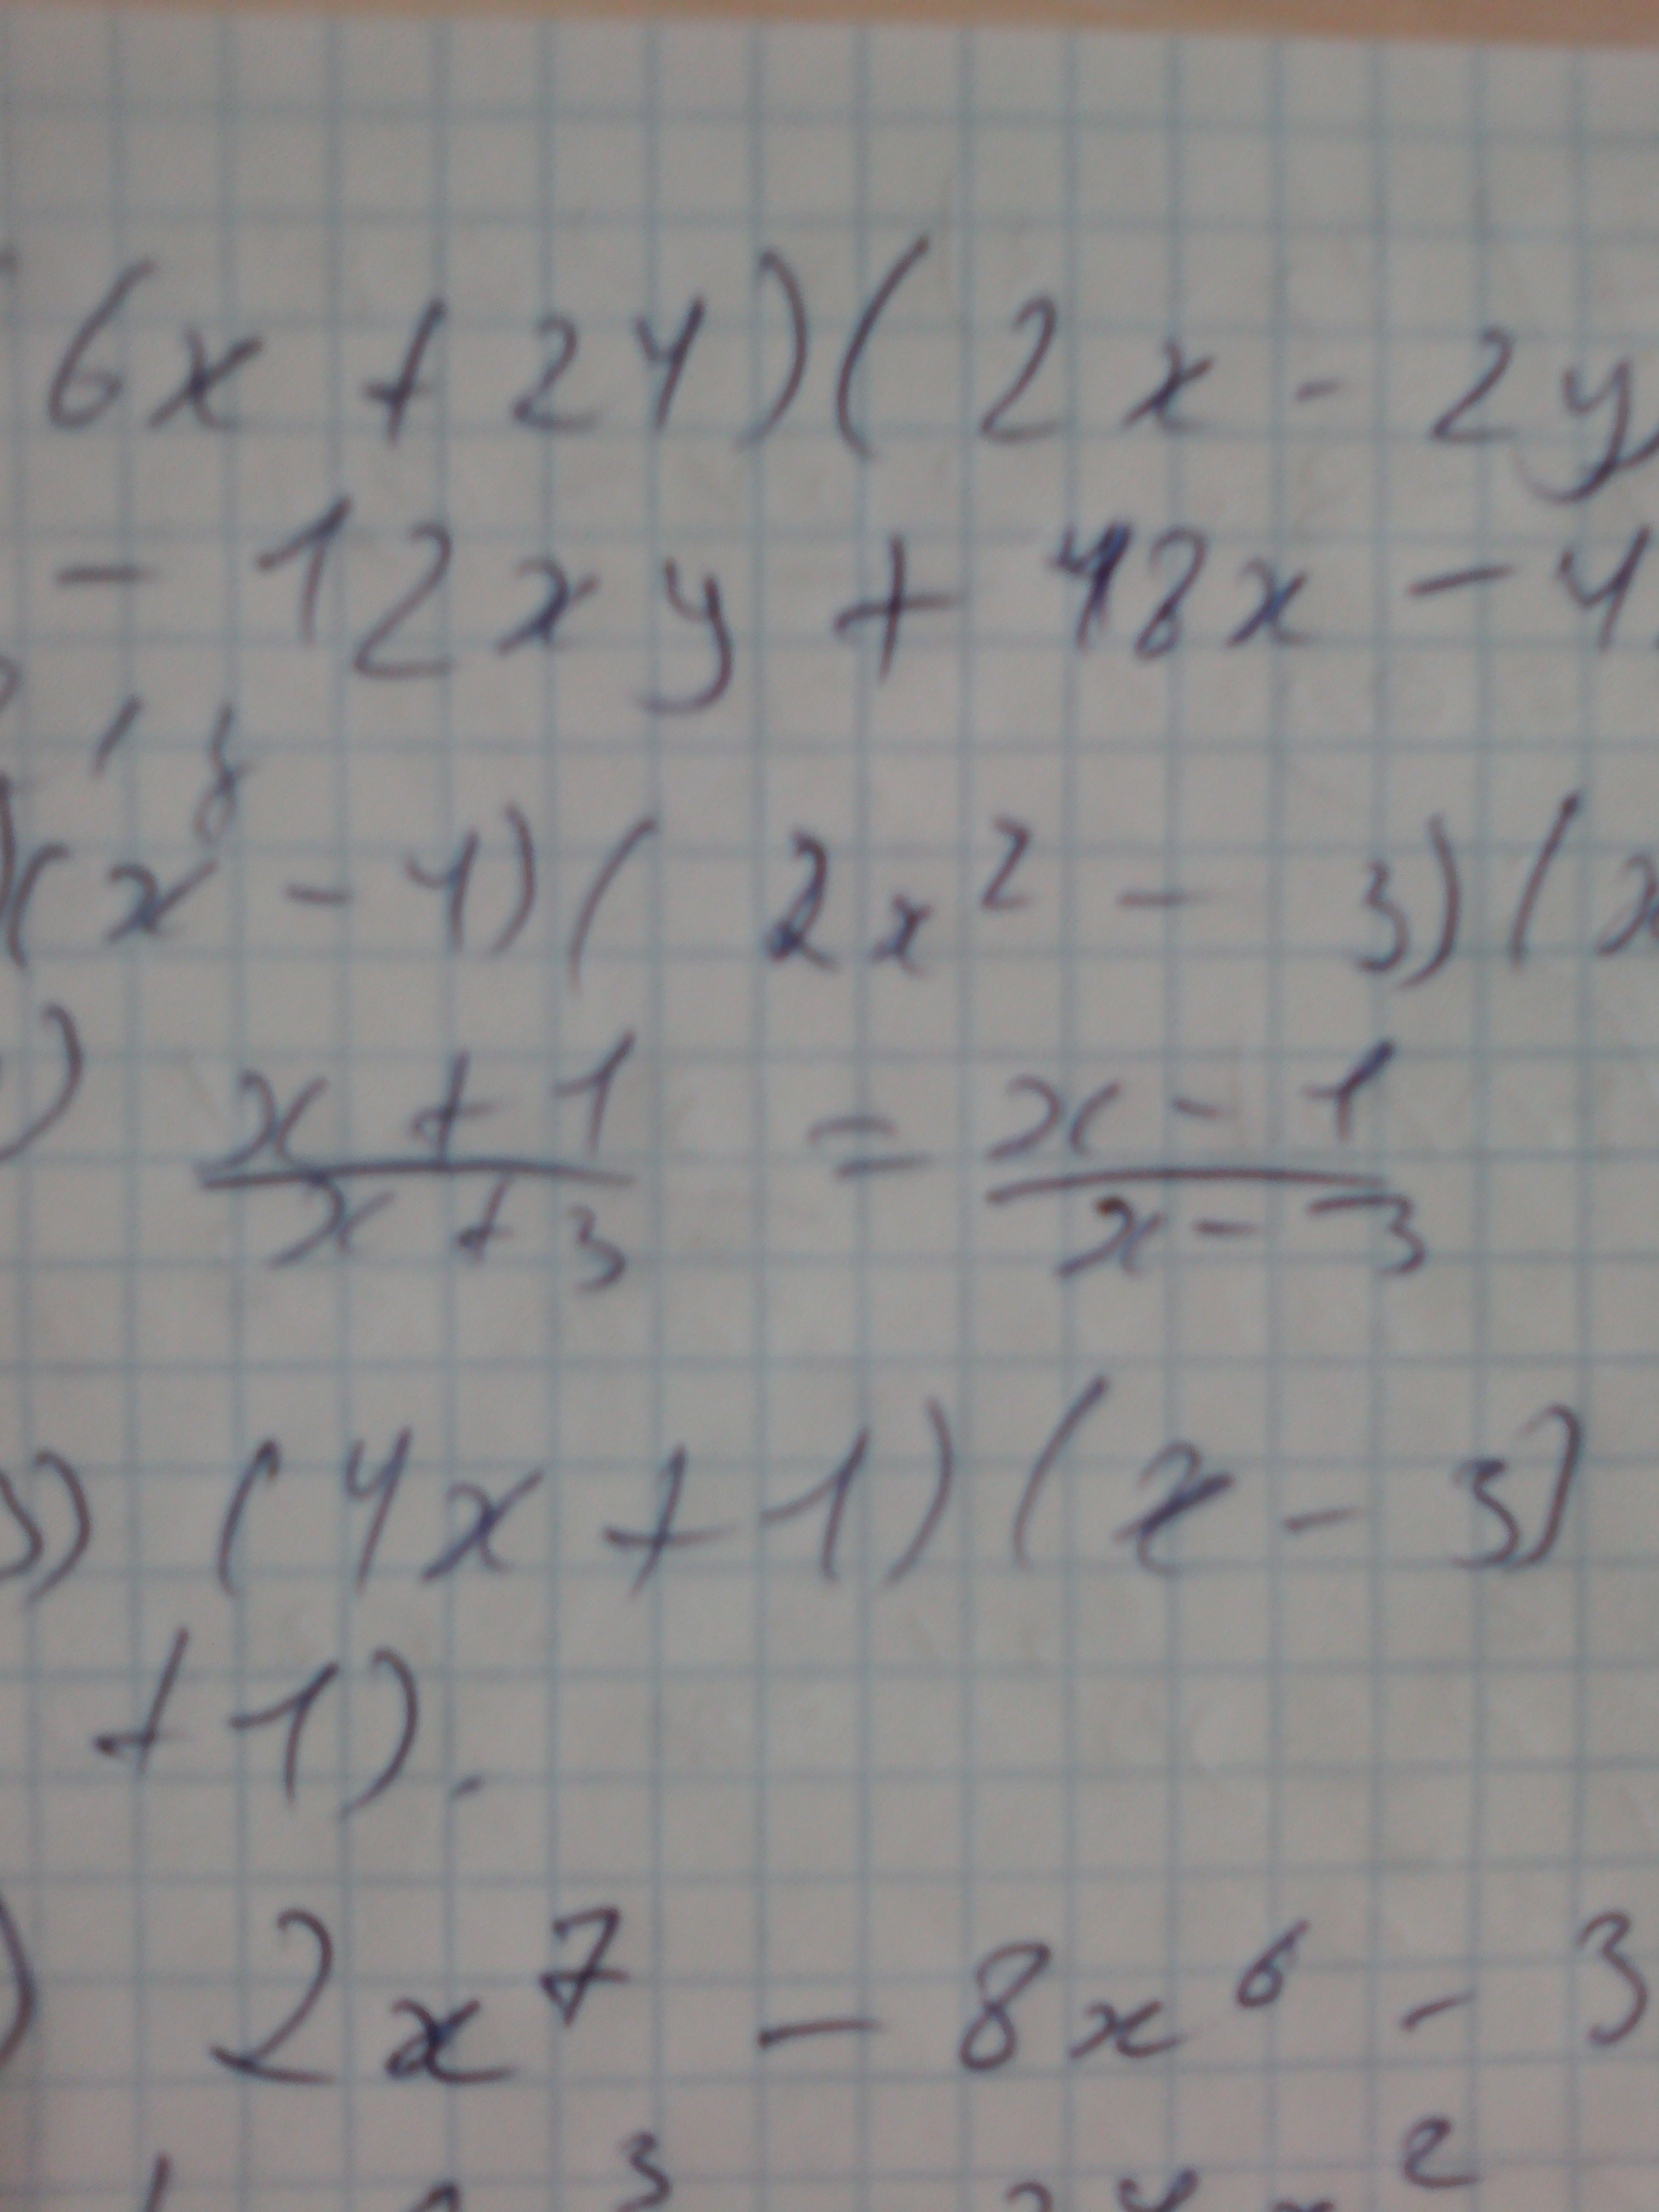 6x + 24)(2x - 2y
- 12xy + 48x - 4
(x - 4)(2x² - 3)(x
) x + 1 = x - 1
x + 3 x - 3
3) (4x + 1)(x - 3)
+ 1).
) 2x⁷ - 8x⁶ - 3